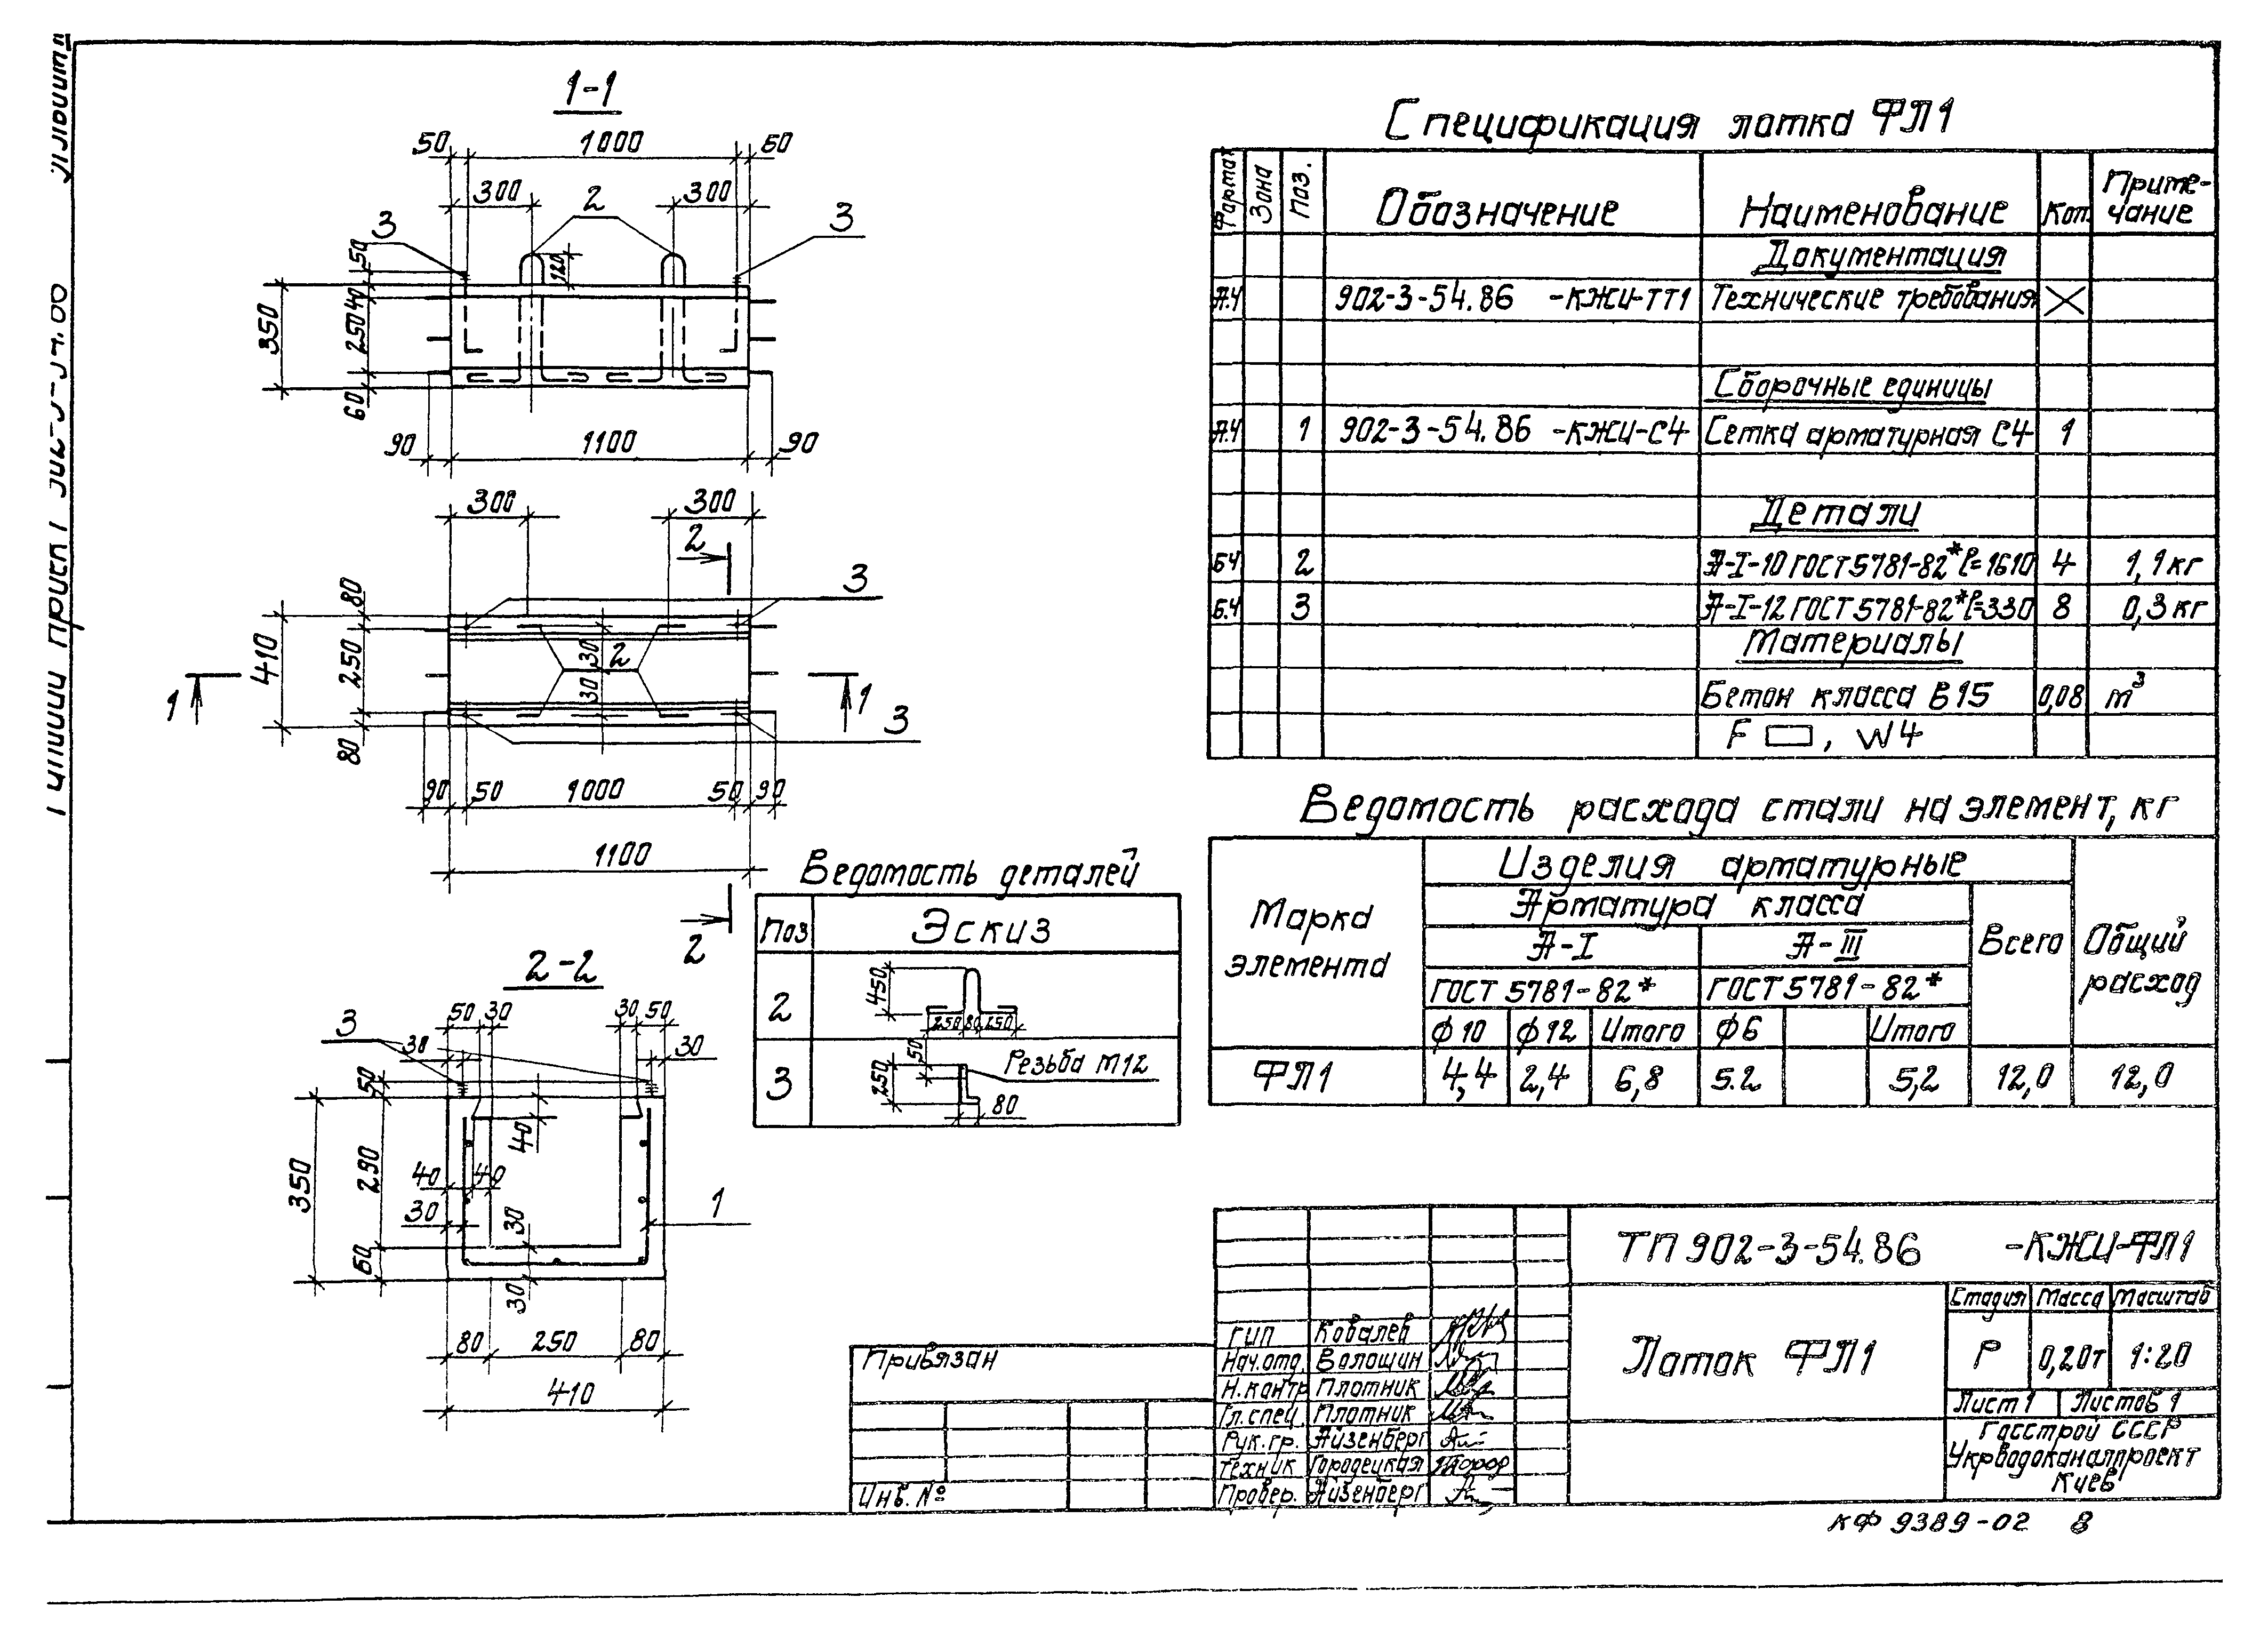 1-1
50 1000 60
300 2 300
3 3
50
120
350 250 40
60
90 1100 90
300 300
2
3
80
410 250 30 2
30
1 1
3
80
90 50 1000 50 90
1100
2
2-2
50 30 30 50
3 30 30
50
40
350 290 40 40
30 30 1
60
30
80 250 80
410
Ведомость деталей
Поз Эскиз
2 450 250 80 250
3 50 250 Резьба М12 80
Спецификация лотка ФЛ1
Формат Зона Поз. Обозначение Наименование Кол. Приме-
чание
Документация
А.4 902-3-54.86 -КЖИ-ТТ1 Технические требования
Сборочные единицы
А.4 1 902-3-54.86 -КЖИ-С4 Сетка арматурная С4 1
Детали
Б4 2 А-I-10 ГОСТ 5781-82* ℓ=1610 4 1,1 кг
Б.4 3 А-I-12 ГОСТ 5781-82* ℓ=330 8 0,3 кг
Материалы
Бетон класса В15 0,08 м³
F , W4
Ведомость расхода стали на элемент, кг
Марка элемента Изделия арматурные Общий расход
Арматура класса Всего
А-I А-III
ГОСТ 5781-82* ГОСТ 5781-82*
ф10 ф12 Итого ф6 Итого
ФЛ1 4,4 2,4 6,8 5.2 5,2 12,0 12,0
ТП 902-3-54.86 -КЖИ-ФЛ1
Стадия Масса Масштаб
Лоток ФЛ1 Р 0,20т 1:20
Лист 1 Листов 1
Госстрой СССР
Укрводоканалпроект
Киев
ГИП Ковалев
Нач.отд. Волошин
Н.контр Плотник
Гл.спец. Плотник
Рук.гр. Айзенберг
Техник Городецкая
Провер. Айзенберг
Привязан
Инв. №
КФ 9389-02 8